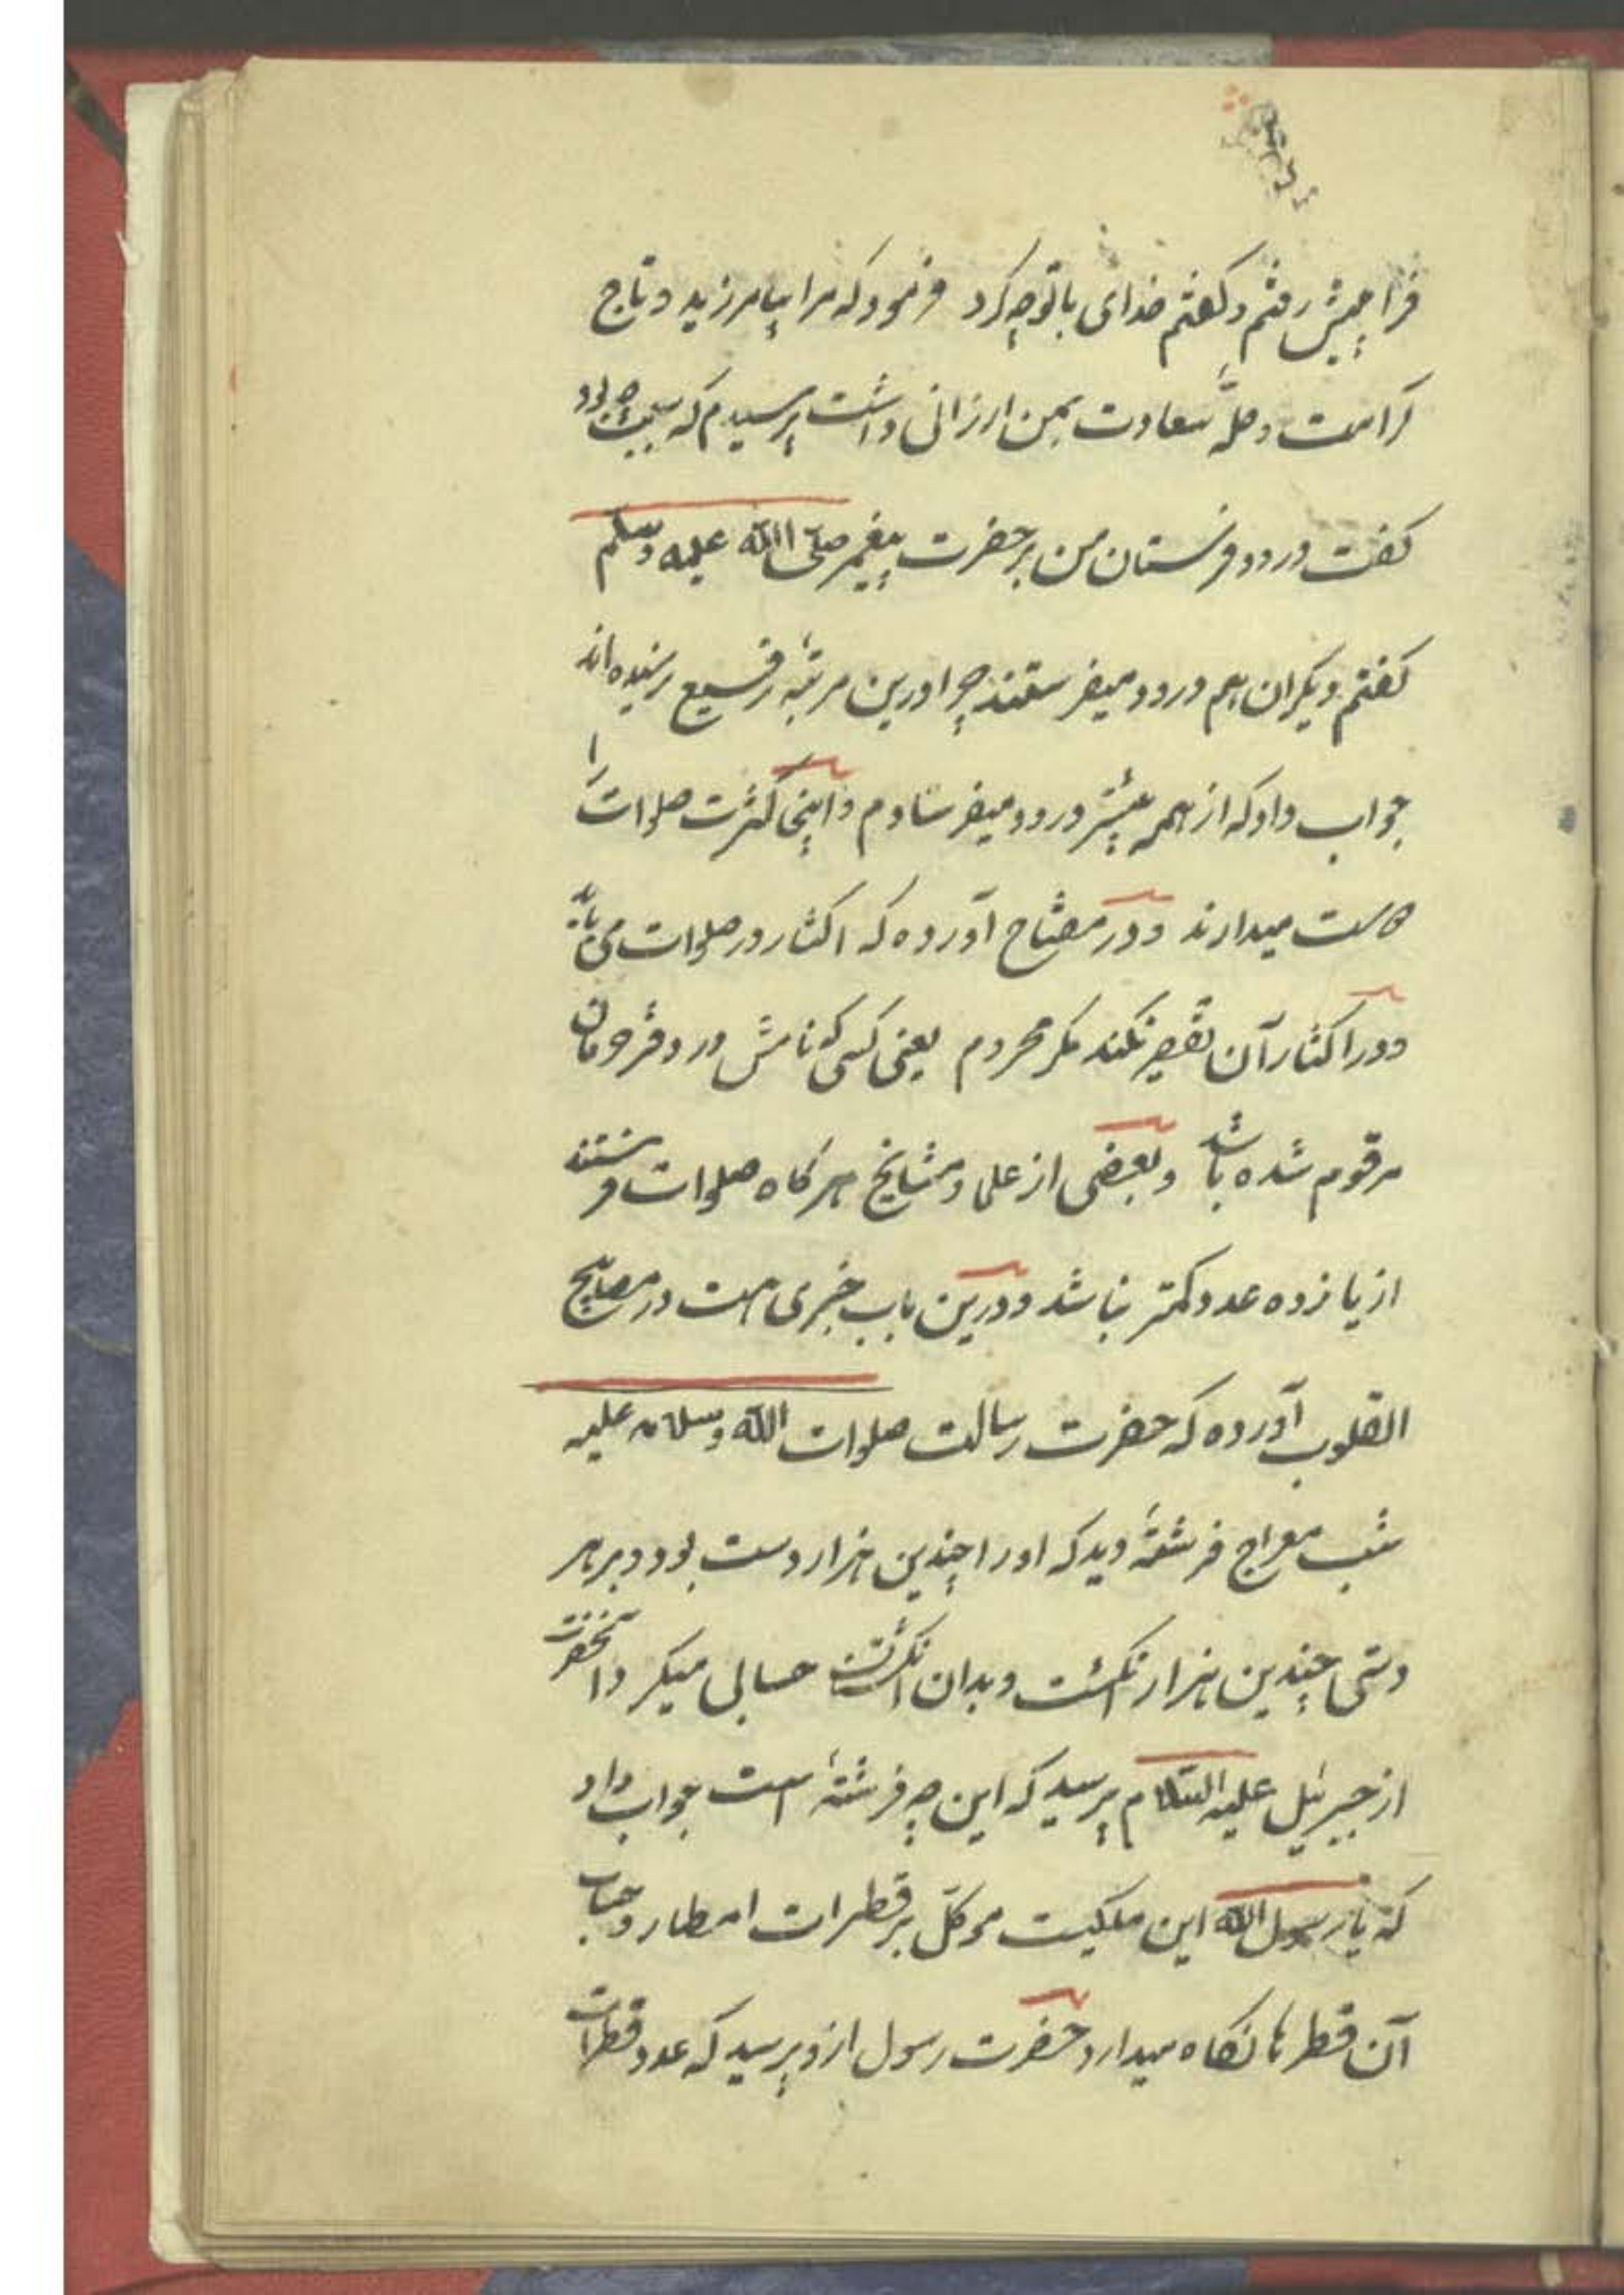 فرا پیش رفتم و کفتم خدای با تو چه کرد فرمود که مرا بیامرزید و تاج
کرامت و حلّه سعادت بمن ارزانی داشت پرسیدم که سبب چه بود
کفت درود فرستادن من بر حضرت پیغمبر صلّی الله علیه وسلم
کفتم دیکران هم درود میفرستند چرا درین مرتبهٔ رفیع نرسیده‌اند
جواب داد که از همه بیشتر درود میفرستادم و اینجا کثرت صلوات را
دوست میدارند و در مفتاح آورده که اکثار در صلوات می باید
و در اکثار آن تقصیر نکند مکر محروم یعنی کسی که نامش در دفتر حرمان
مرقوم شده باشد و بعضی از علما و مشایخ هر کاه صلوات فرستند
از یازده عدد کمتر نباشد و درین باب خبری هست در مصابیح
القلوب آورده که حضرت رسالت صلوات الله وسلامه علیه
شب معراج فرشتهٔ دید که او را چندین هزار دست بود و بر هر
دستی چندین هزار انکشت و بدان انکشت حسابی میکرد آنحضرت
از جبرئیل علیه السّلام پرسید که این چه فرشتهٔ است جواب داد
که یا رسول الله این ملکیست موکّل بر قطرات امطار و حساب
آن قطرها نکاه میدارد حضرت رسول ازو پرسید که عدد قطرات